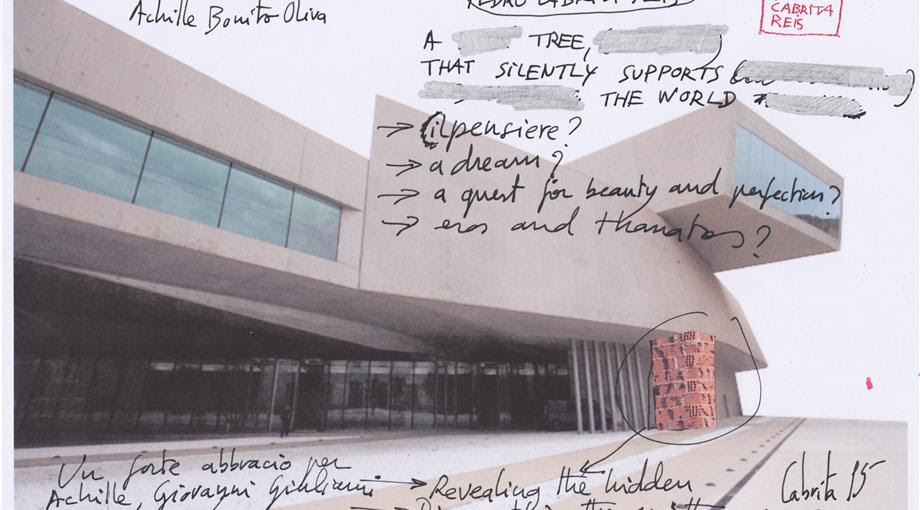 Achille Bonito Oliva
CABRITA
REIS
A TREE,
THAT SILENTLY SUPPORTS
THE WORLD
→ il pensiere?
→ a dream?
→ a quest for beauty and perfection?
→ eros and thanatos?
Un forte abbracio per
Achille, Giovanni Giuliani
→ Revealing the hidden
Cabrita 15